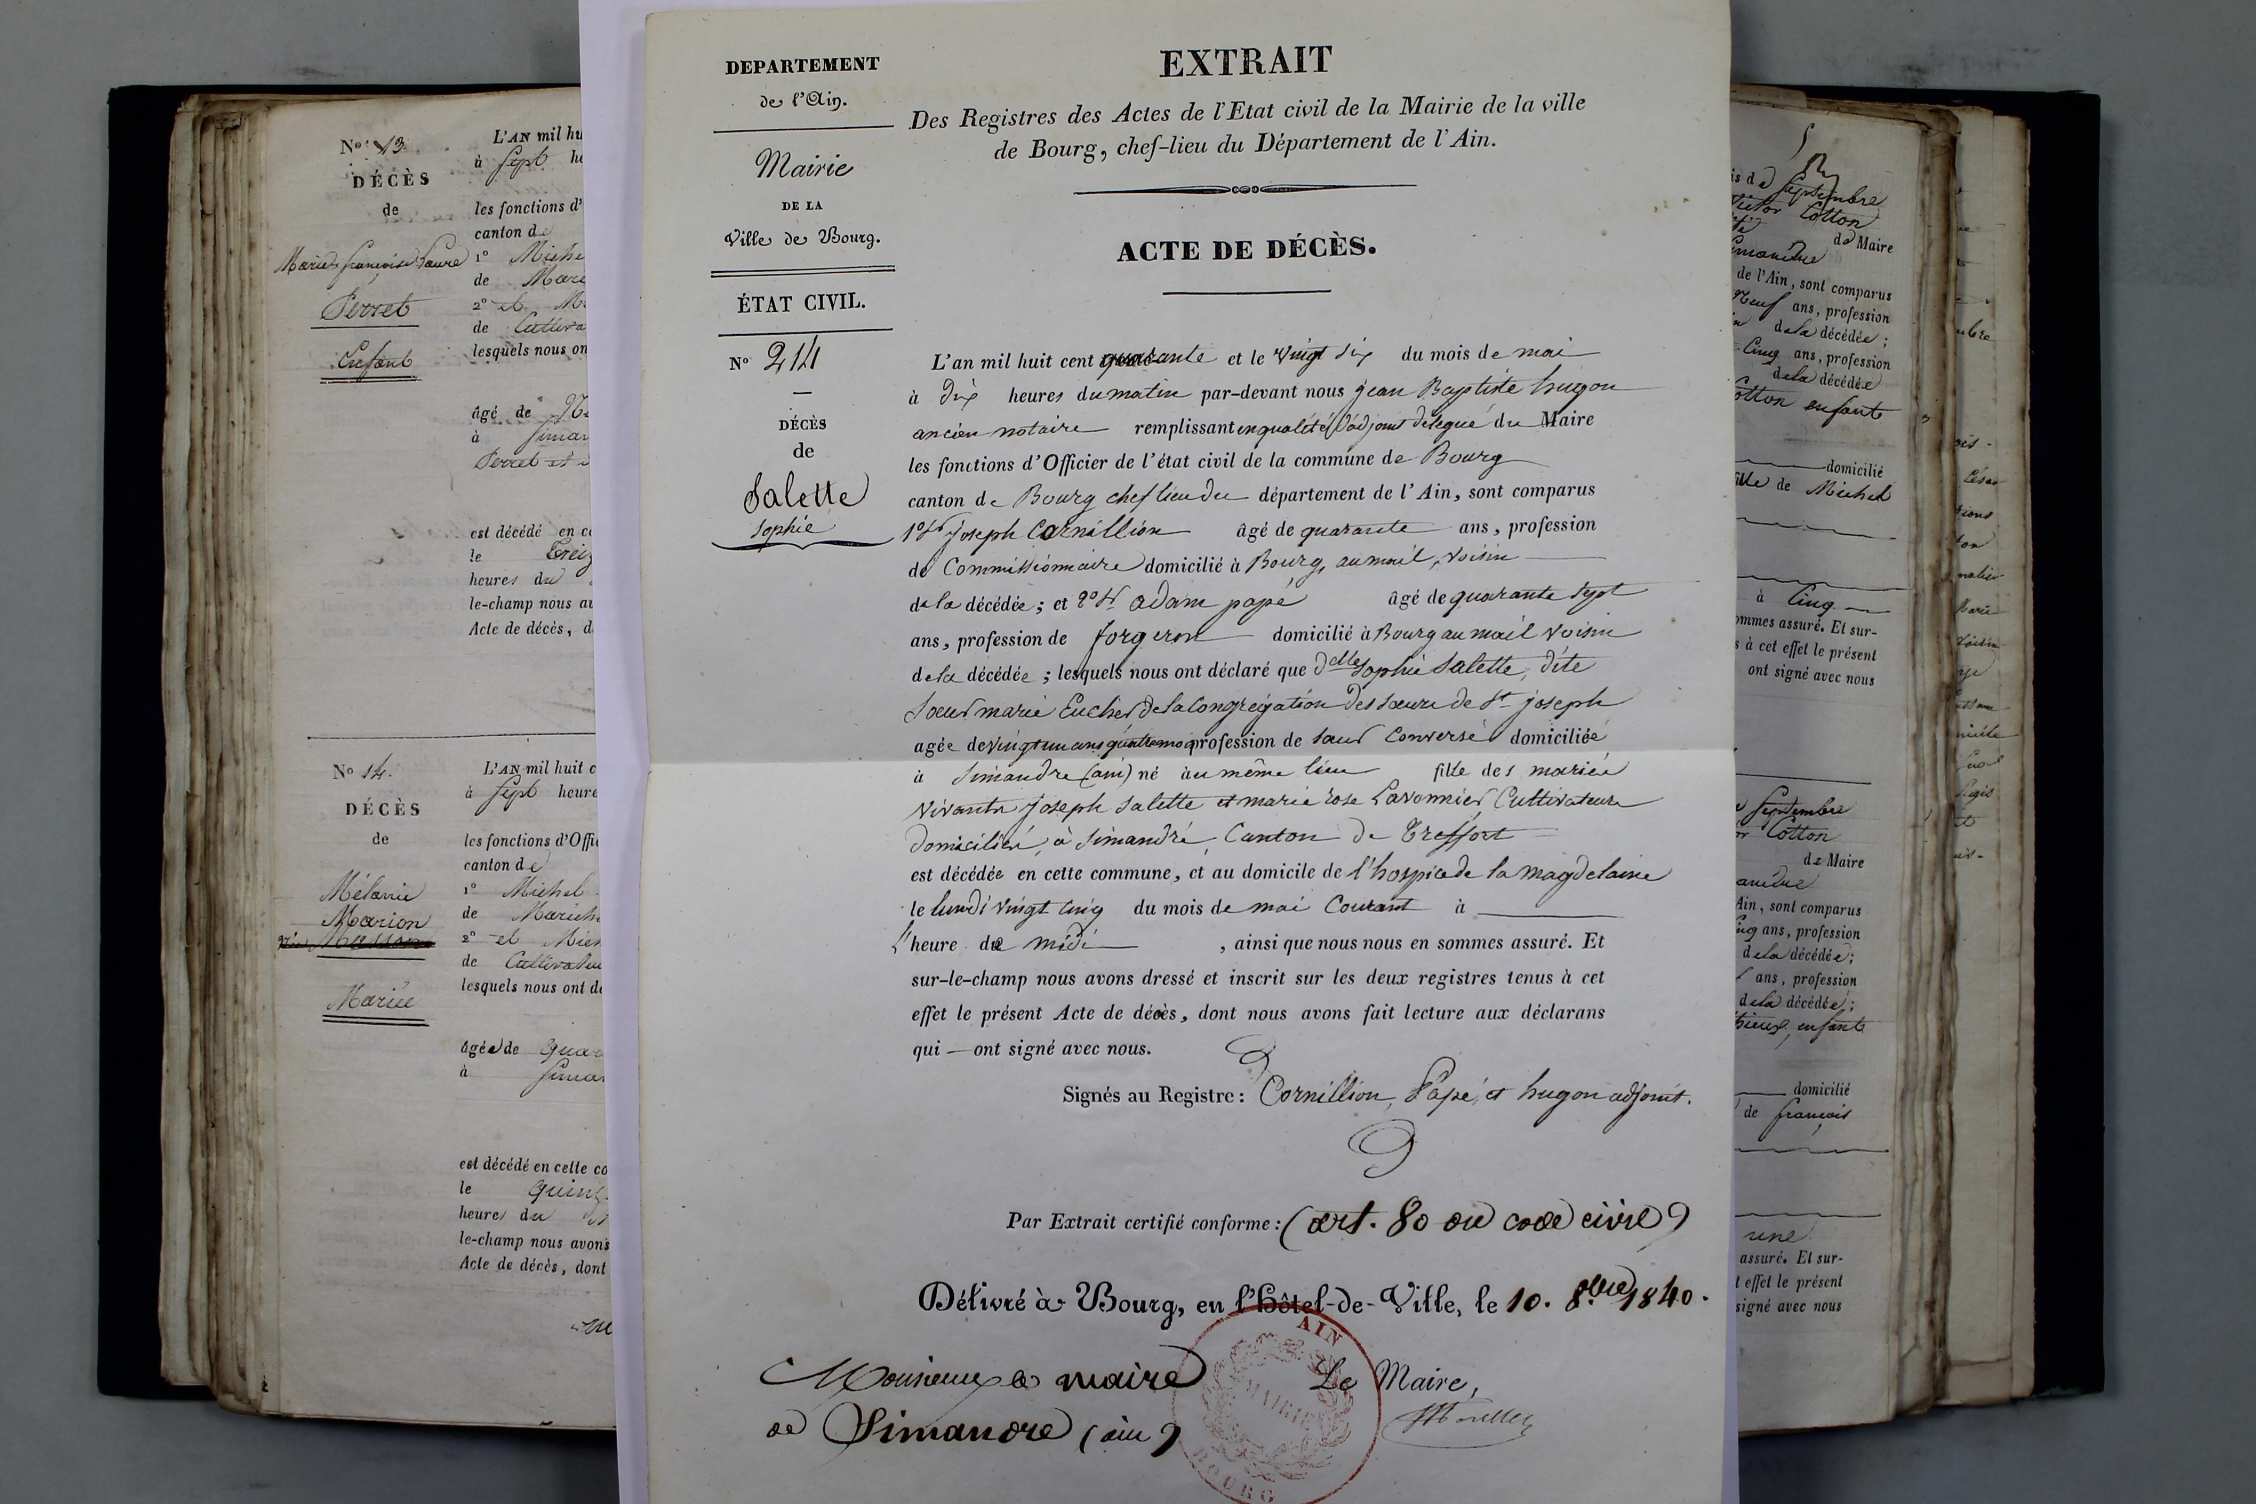 No 13.
DÉCÈS
de
Marie françoise Laure
Perret
Enfant
L'AN mil hu
à Sept he
les fonctions d'
canton de
1o Miche
de Mare
2o et M
de Cultiva
lesquels nous on
âgé de
à Siman
Perret et
est décédé en c
le treiz
heures du
le-champ nous av
Acte de décès, d
No 14.
DÉCÈS
de
Mélanie
Marion
Mariée
L'AN mil huit c
à Sept heure
les fonctions d'Offi
canton de
1o Michel
de Marich
2o et Mich
de Cultivateu
lesquels nous ont d
âgée de quar
à Siman
est décédé en cette co
le quinz
heures du
le-champ nous avons
Acte de décès, dont
DEPARTEMENT
de l'Ain.
Mairie
DE LA
Ville de Bourg.
ÉTAT CIVIL.
No 214
DÉCÈS
de
Salette
Sophie
EXTRAIT
Des Registres des Actes de l'Etat civil de la Mairie de la ville
de Bourg, chef-lieu du Département de l'Ain.
ACTE DE DÉCÈS.
L'an mil huit cent quarante et le vingt six du mois de mai
à dix heures du matin par-devant nous jean Baptiste hugon
ancien notaire remplissant en qualité d'adjoint délégué du Maire
les fonctions d'Officier de l'état civil de la commune de Bourg
canton de Bourg chef lieu du département de l'Ain, sont comparus
1o Sr joseph Cornillion âgé de quarante ans, profession
de Commissionnaire domicilié à Bourg, au mail, voisin
de la décédée; et 2o Sr adam papé âgé de quarante sept
ans, profession de forgeron domicilié à Bourg au mail voisin
de la décédée; lesquels nous ont déclaré que delle Sophie Salette, dite
Soeur marie Eucher de la Congrégation des soeurs de St joseph
agée de vingt un ans quatre mois profession de soeur Converse domiciliée
à Simandre (ain) né au même lieu fille des mariés
vivants joseph Salette et marie rose Lavonnier Cultivateurs
domiciliés, à Simandre, Canton de Treffort
est décédée en cette commune, et au domicile de l'hospice de la magdelaine
le lundi vingt cinq du mois de mai Courant à
l'heure de midi , ainsi que nous nous en sommes assuré. Et
sur-le-champ nous avons dressé et inscrit sur les deux registres tenus à cet
effet le présent Acte de décès, dont nous avons fait lecture aux déclarans
qui — ont signé avec nous.
Signés au Registre: Cornillion, Papé, et hugon adjoint.
Par Extrait certifié conforme: (art. 80 du code civil)
Délivré à Bourg, en l'hôtel-de-Ville, le 10. 8bre 1840.
Monsieur le maire
de Simandre (ain)
Le Maire,
AIN
MAIRIE
BOURG
is de Septembre
Victor Cotton
de Maire
Simandre
de l'Ain, sont comparus
Neuf ans, profession
de la décédée;
Cinq ans, profession
de la décédée
Cotton enfante
domicilié
fille de Michel
à Cinq
ommes assuré. Et sur-
s à cet effet le présent
ont signé avec nous
Septembre
or Cotton
de Maire
andre
Ain, sont comparus
inq ans, profession
de la décédée;
ans, profession
de la décédée;
enfante
domicilié
de françois
une
assuré. Et sur-
t effet le présent
signé avec nous